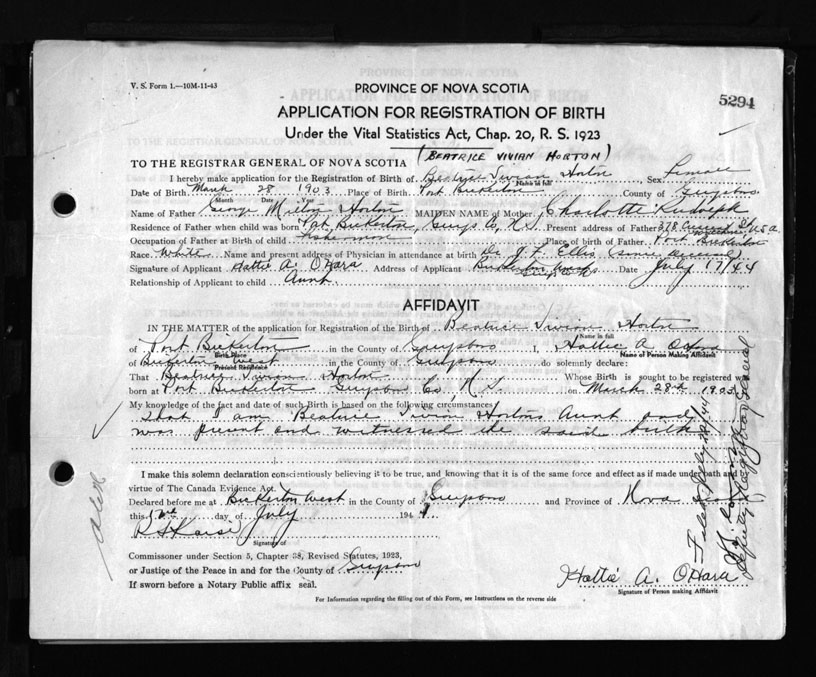 V. S. Form 1.—10M-11-43
5294
PROVINCE OF NOVA SCOTIA
APPLICATION FOR REGISTRATION OF BIRTH
Under the Vital Statistics Act, Chap. 20, R. S. 1923
(BEATRICE VIVIAN HORTON)
TO THE REGISTRAR GENERAL OF NOVA SCOTIA
I hereby make application for the Registration of Birth of Beatrice Vivian Horton Sex Female
Name in full
Date of Birth March 28 1903 Place of Birth Port Bickerton County of Guysboro
Month Date Year
Name of Father George Milton Horton MAIDEN NAME of Mother Charlotte Rudolph
Residence of Father when child was born Port Bickerton, Guys Co, N.S. Present address of Father 378
Occupation of Father at Birth of child Fisherman Place of birth of Father Port Bickerton
Race White Name and present address of Physician in attendance at birth Dr J. L. Ellis (since deceased)
Signature of Applicant Hattie A. O'Hara Address of Applicant Bickerton West Date July 17/44
Guys Co NS
Relationship of Applicant to child Aunt
AFFIDAVIT
IN THE MATTER of the application for Registration of the Birth of Beatrice Vivian Horton
Name in full
of Port Bickerton in the County of Guysboro I, Hattie A O'Hara
Birth Place
Name of Person Making Affidavit
of Bickerton West in the County of Guysboro do solemnly declare:
Present Residence
That Beatrice Vivian Horton Whose Birth is sought to be registered was
born at Port Bickerton Guysboro Co, N.S. on March 28th 1903
My knowledge of the fact and date of such Birth is based on the following circumstances
that I am Beatrice Vivian Hortons Aunt and
was present and witnessed the said birth
I make this solemn declaration conscientiously believing it to be true, and knowing that it is of the same force and effect as if made under oath and by
virtue of The Canada Evidence Act.
Declared before me at Bickerton West in the County of Guysboro and Province of Nova Scotia
this 17th day of July 1944
Signature of
Commissioner under Section 5, Chapter 38, Revised Statutes, 1923,
or Justice of the Peace in and for the County of Guysboro
If sworn before a Notary Public affix seal.
Hattie A. O'Hara
Signature of Person making Affidavit
For Information regarding the filling out of this Form, see Instructions on the reverse side
Filed July 28/44
Deputy Registrar General